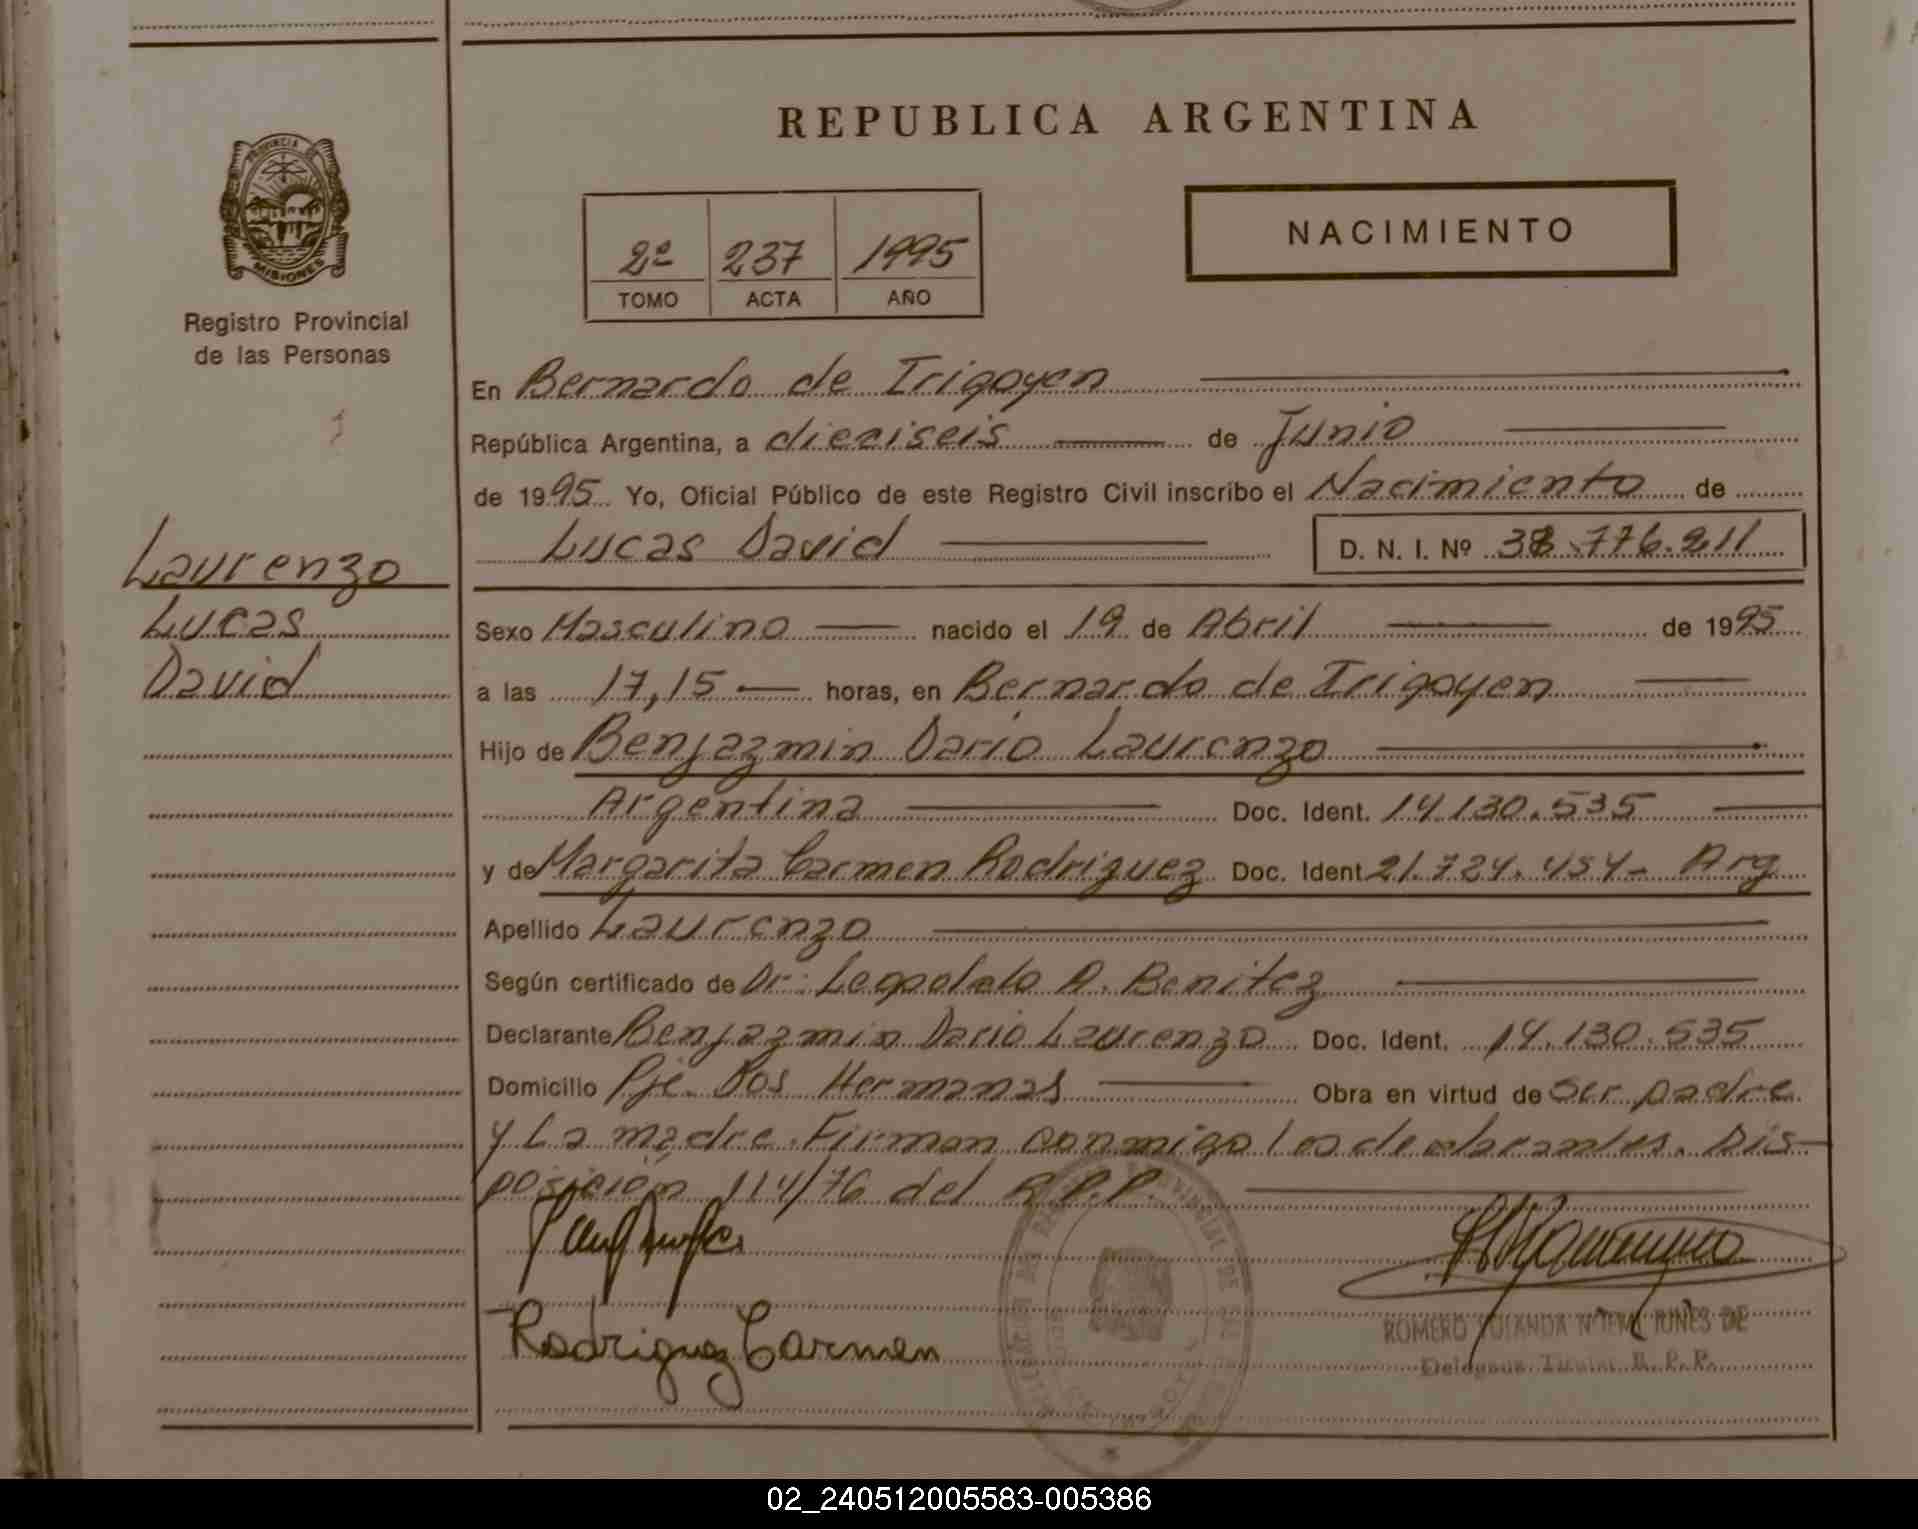 REPUBLICA ARGENTINA
PROVINCIA DE
MISIONES
Registro Provincial
de las Personas
2º 237 1995
TOMO ACTA AÑO
NACIMIENTO
En Bernardo de Irigoyen
República Argentina, a dieciseis de Junio
de 1995 Yo, Oficial Público de este Registro Civil inscribo el Nacimiento de
Lucas David D. N. I. Nº 38.776.211
Laurenzo
Lucas
David
Sexo Masculino nacido el 19 de Abril de 1995
a las 17,15 horas, en Bernardo de Irigoyen
Hijo de Benjazmin Dario Laurenzo
Argentina Doc. Ident. 14.130.535
y de Margarita Carmen Rodriguez Doc. Ident. 21.724.454- Arg
Apellido Laurenzo
Según certificado de Dr: Leopoldo A. Benitez
Declarante Benjazmin Dario Laurenzo Doc. Ident. 14.130.535
Domicilio Pje. Dos Hermanas Obra en virtud de ser padre
y La madre. Firman conmigo los declarantes. Dis-
posición 114/76 del R.P.P.
Rodriguez Carmen
ROMERO YOLANDA DE
Delegada Titular R. P. P.
02_240512005583-005386